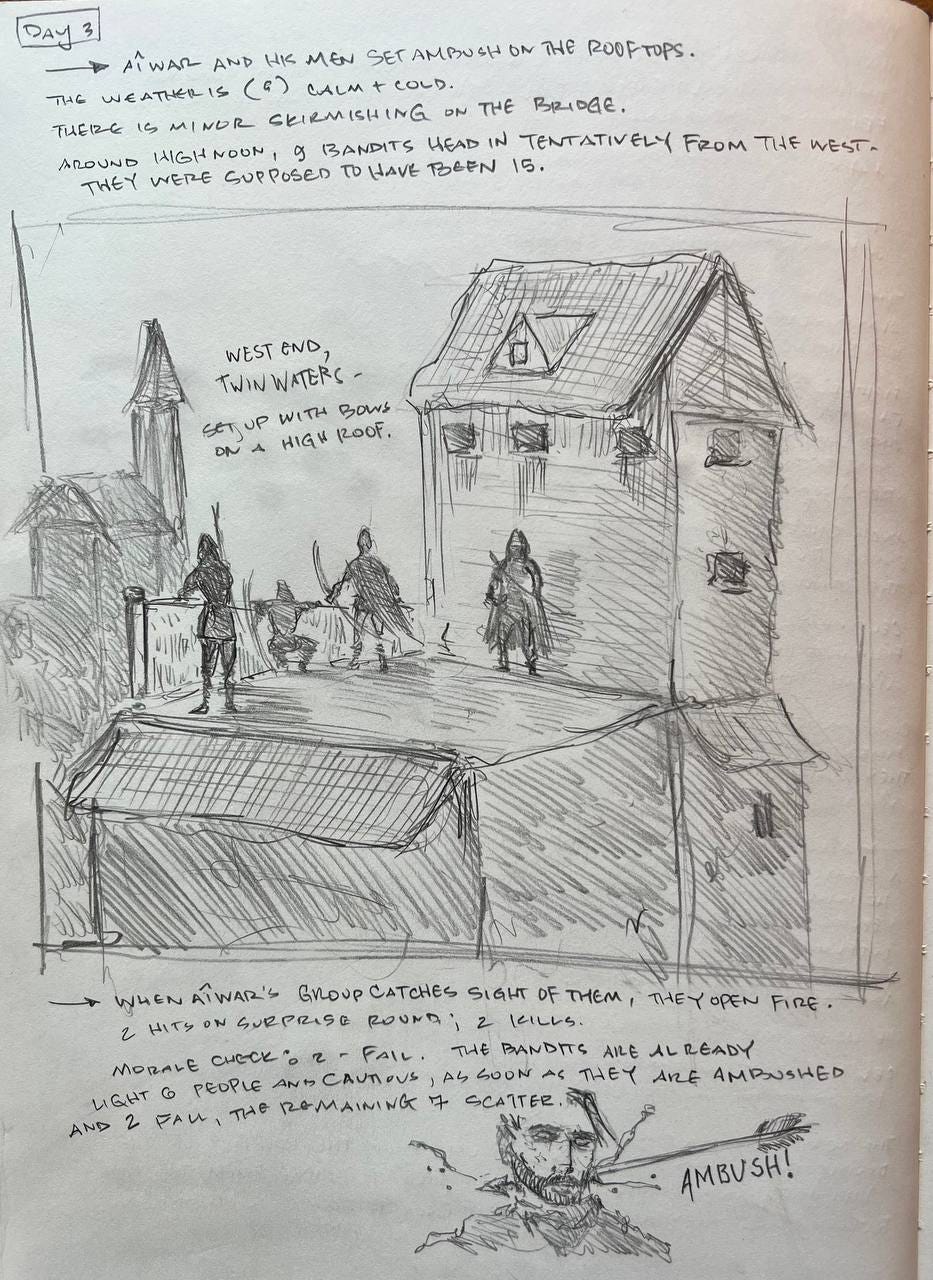 DAY 3
→ AÎWAR AND HIS MEN SET AMBUSH ON THE ROOFTOPS.
THE WEATHER IS (9) CALM + COLD.
THERE IS MINOR SKIRMISHING ON THE BRIDGE.
AROUND HIGH NOON, 9 BANDITS HEAD IN TENTATIVELY FROM THE WEST.
THEY WERE SUPPOSED TO HAVE BEEN 15.
WEST END,
TWIN WATERS -
SET UP WITH BOWS
ON A HIGH ROOF.
→ WHEN AÎWAR'S GROUP CATCHES SIGHT OF THEM, THEY OPEN FIRE.
2 HITS ON SURPRISE ROUND; 2 KILLS.
MORALE CHECK: 2 - FAIL. THE BANDITS ARE ALREADY
LIGHT 6 PEOPLE AND CAUTIOUS, AS SOON AS THEY ARE AMBUSHED
AND 2 FALL, THE REMAINING 7 SCATTER.
AMBUSH!